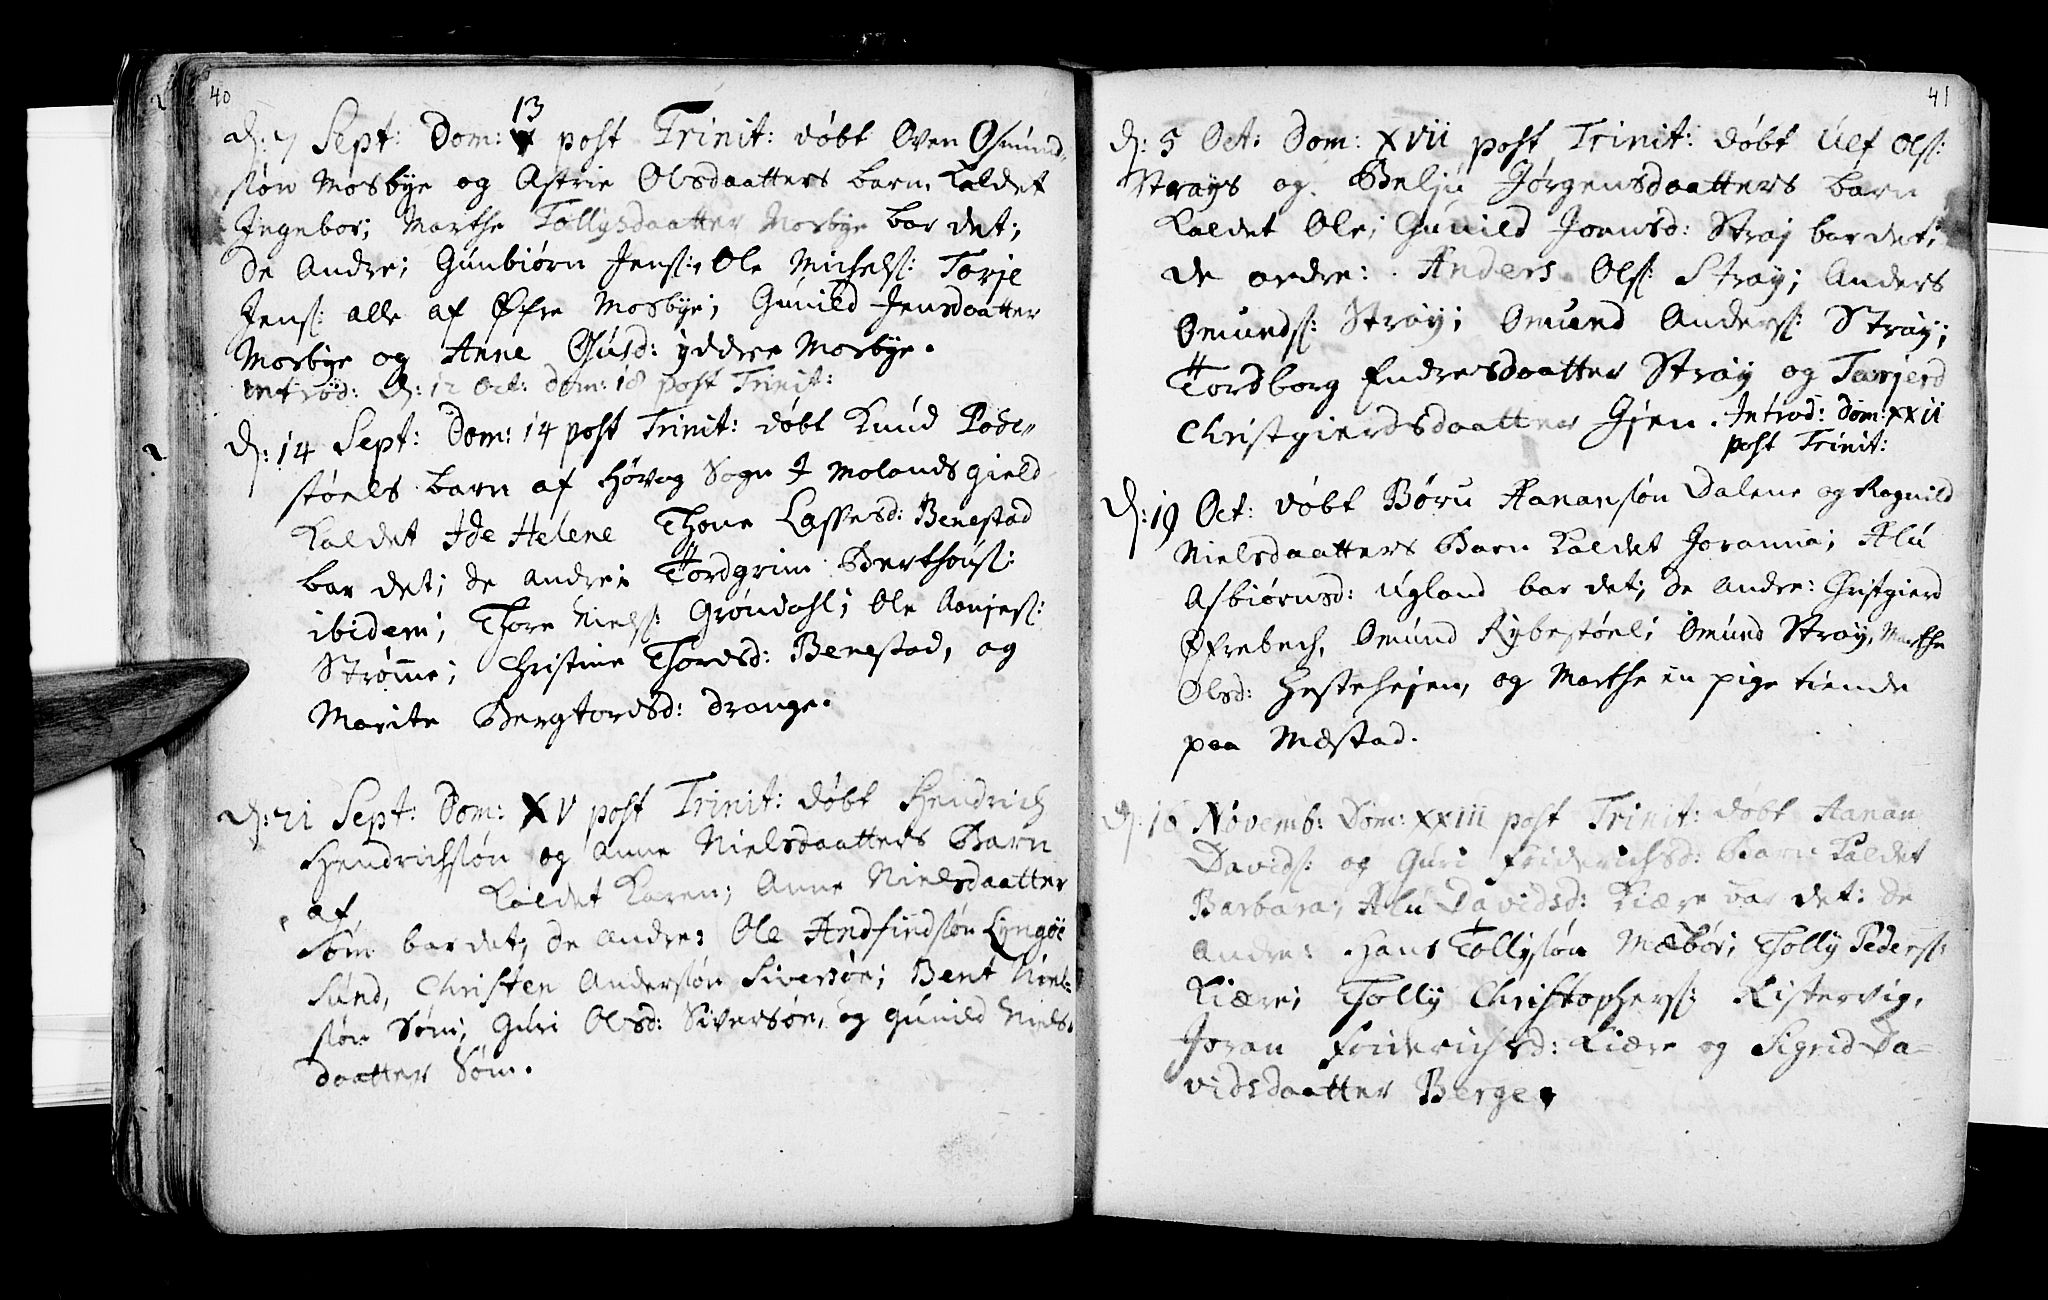 40
13
d: 7 Sept: Dom: post Trinit: døbt Oven Osmund-
søn Mosbye og Astrie Olsdaatters barn kaldet
Ingebor; Marthe Tollysdaatter Mosbye bar det;
de Andre; Gunbiørn Jens: Ole Michels: Torje
Jens: alle af Øfre Mosbye; Gunild Jensdaatter
Mosbye og Anne Gusd: yddre Mosbye.
introd: d: 12 Oct: Dom: 18 post Trinit:
d: 14 Sept: Dom: 14 post Trinit: døbt Knud Pode-
støels barn af Høvag Sogn I Molands gield
kaldet Ide Helene Thone Lassesd: Benestad
bar det; de andre: Tordgrim Berthous:
ibidem; Thore Niels: Grøndahl; Ole Aanjes:
Strømme; Christine Thordsd: Benestad, og
Marite Bergtordsd: drange.
d: 21 Sept: Dom: XV post Trinit: døbt Hendrich
Hendrichsøn og Anne Nielsdaatters Barn
af kaldet Karen; Anne Nielsdaatter
Søm bar det; de andre: Ole Andfindsøn Lyngøe
Sund, Christen Andersøn Siversøe; Bent Niel-
søn Søm; Guri Olsd: Siversøe, og Gunild Niels-
daatter Søm.
41
d: 5 Oct: Dom: XVII post Trinit: døbt Ulf Ols:
Strays og Belju Jørgensdaatters barn
kaldet Ole; Gunild Jornsd: Straj bar det;
de andre: Anders Ols: Stray; Anders
Omunds: Stray; Omund Anders: Stray;
Tordborg Endresdaatter Stray og Tarjerd
Christgierdsdaatter Gjen. Introd: Dom: XXII
post Trinit:
d: 19 Oct: døbt Børu Aanansøn Dalene og Ragnild
Nielsdaatters Barn kaldet Joranna; Alu
Asbiørnsd: Ugland bar det; de Andre: Christgierd
Øfrebech, Omund Rybestøel; Omund Stray, Marthe
Olsd: Hestehejen, og Marthe en pige tiende
paa Mæstad.
d: 16 Novemb: Dom: XXIII post Trinit: døbt Aanan
Davids: og Guri Friderichsd: Barn kaldet
Barbara; Alu Davidsd: Kiære bar det: de
Andre: Hans Tollysøn Mæbøe; Tolly Peders:
Kiære; Tolly Christophers: Kistervig,
Joran Friderichsd: Kiære og Sigrid Da-
vidsdaatter Berge.